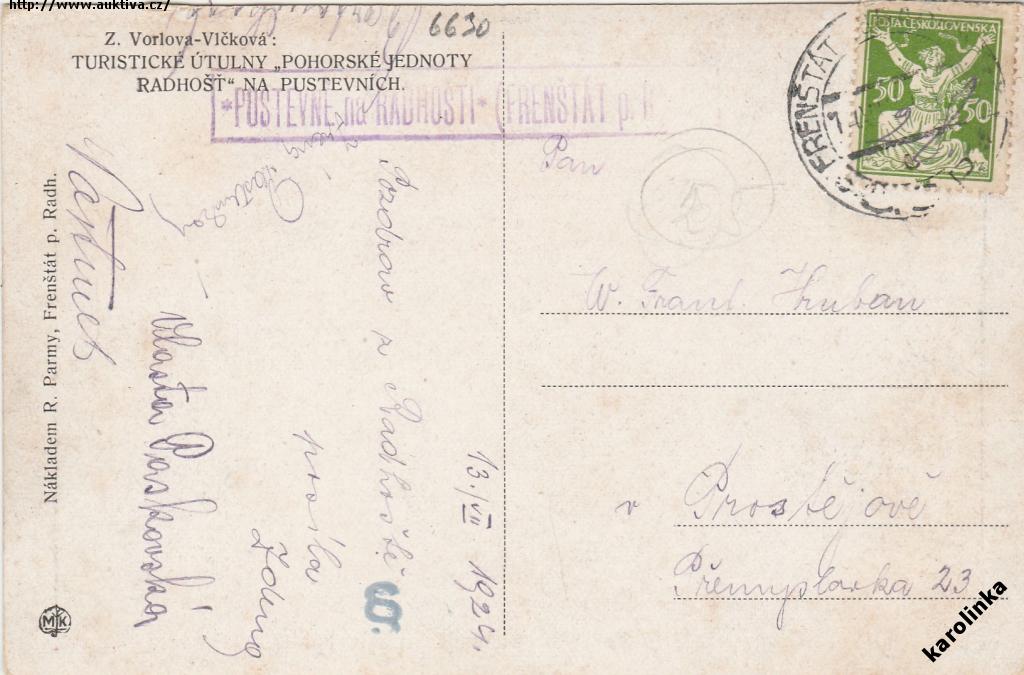 http://www.auktiva.cz/
6630
Z. Vorlova-Vlčková:
TURISTICKÉ ÚTULNY „POHORSKÉ JEDNOTY
RADHOŠŤ" NA PUSTEVNÍCH.
*PUSTEVNE na RADHOŠTI* FRENŠTÁT p. R
POŠTA ČESKOSLOVENSKÁ
50 50
FRENŠTÁT
Pan
Frant. Hruban
v Prostějově
Přemyslovka 23
Pozdrav z Radhoště
posílá
13./VII 1924.
Vlasta Paskovská
Nákladem R. Parmy, Frenštát p. Radh.
MK
S.
karolinka